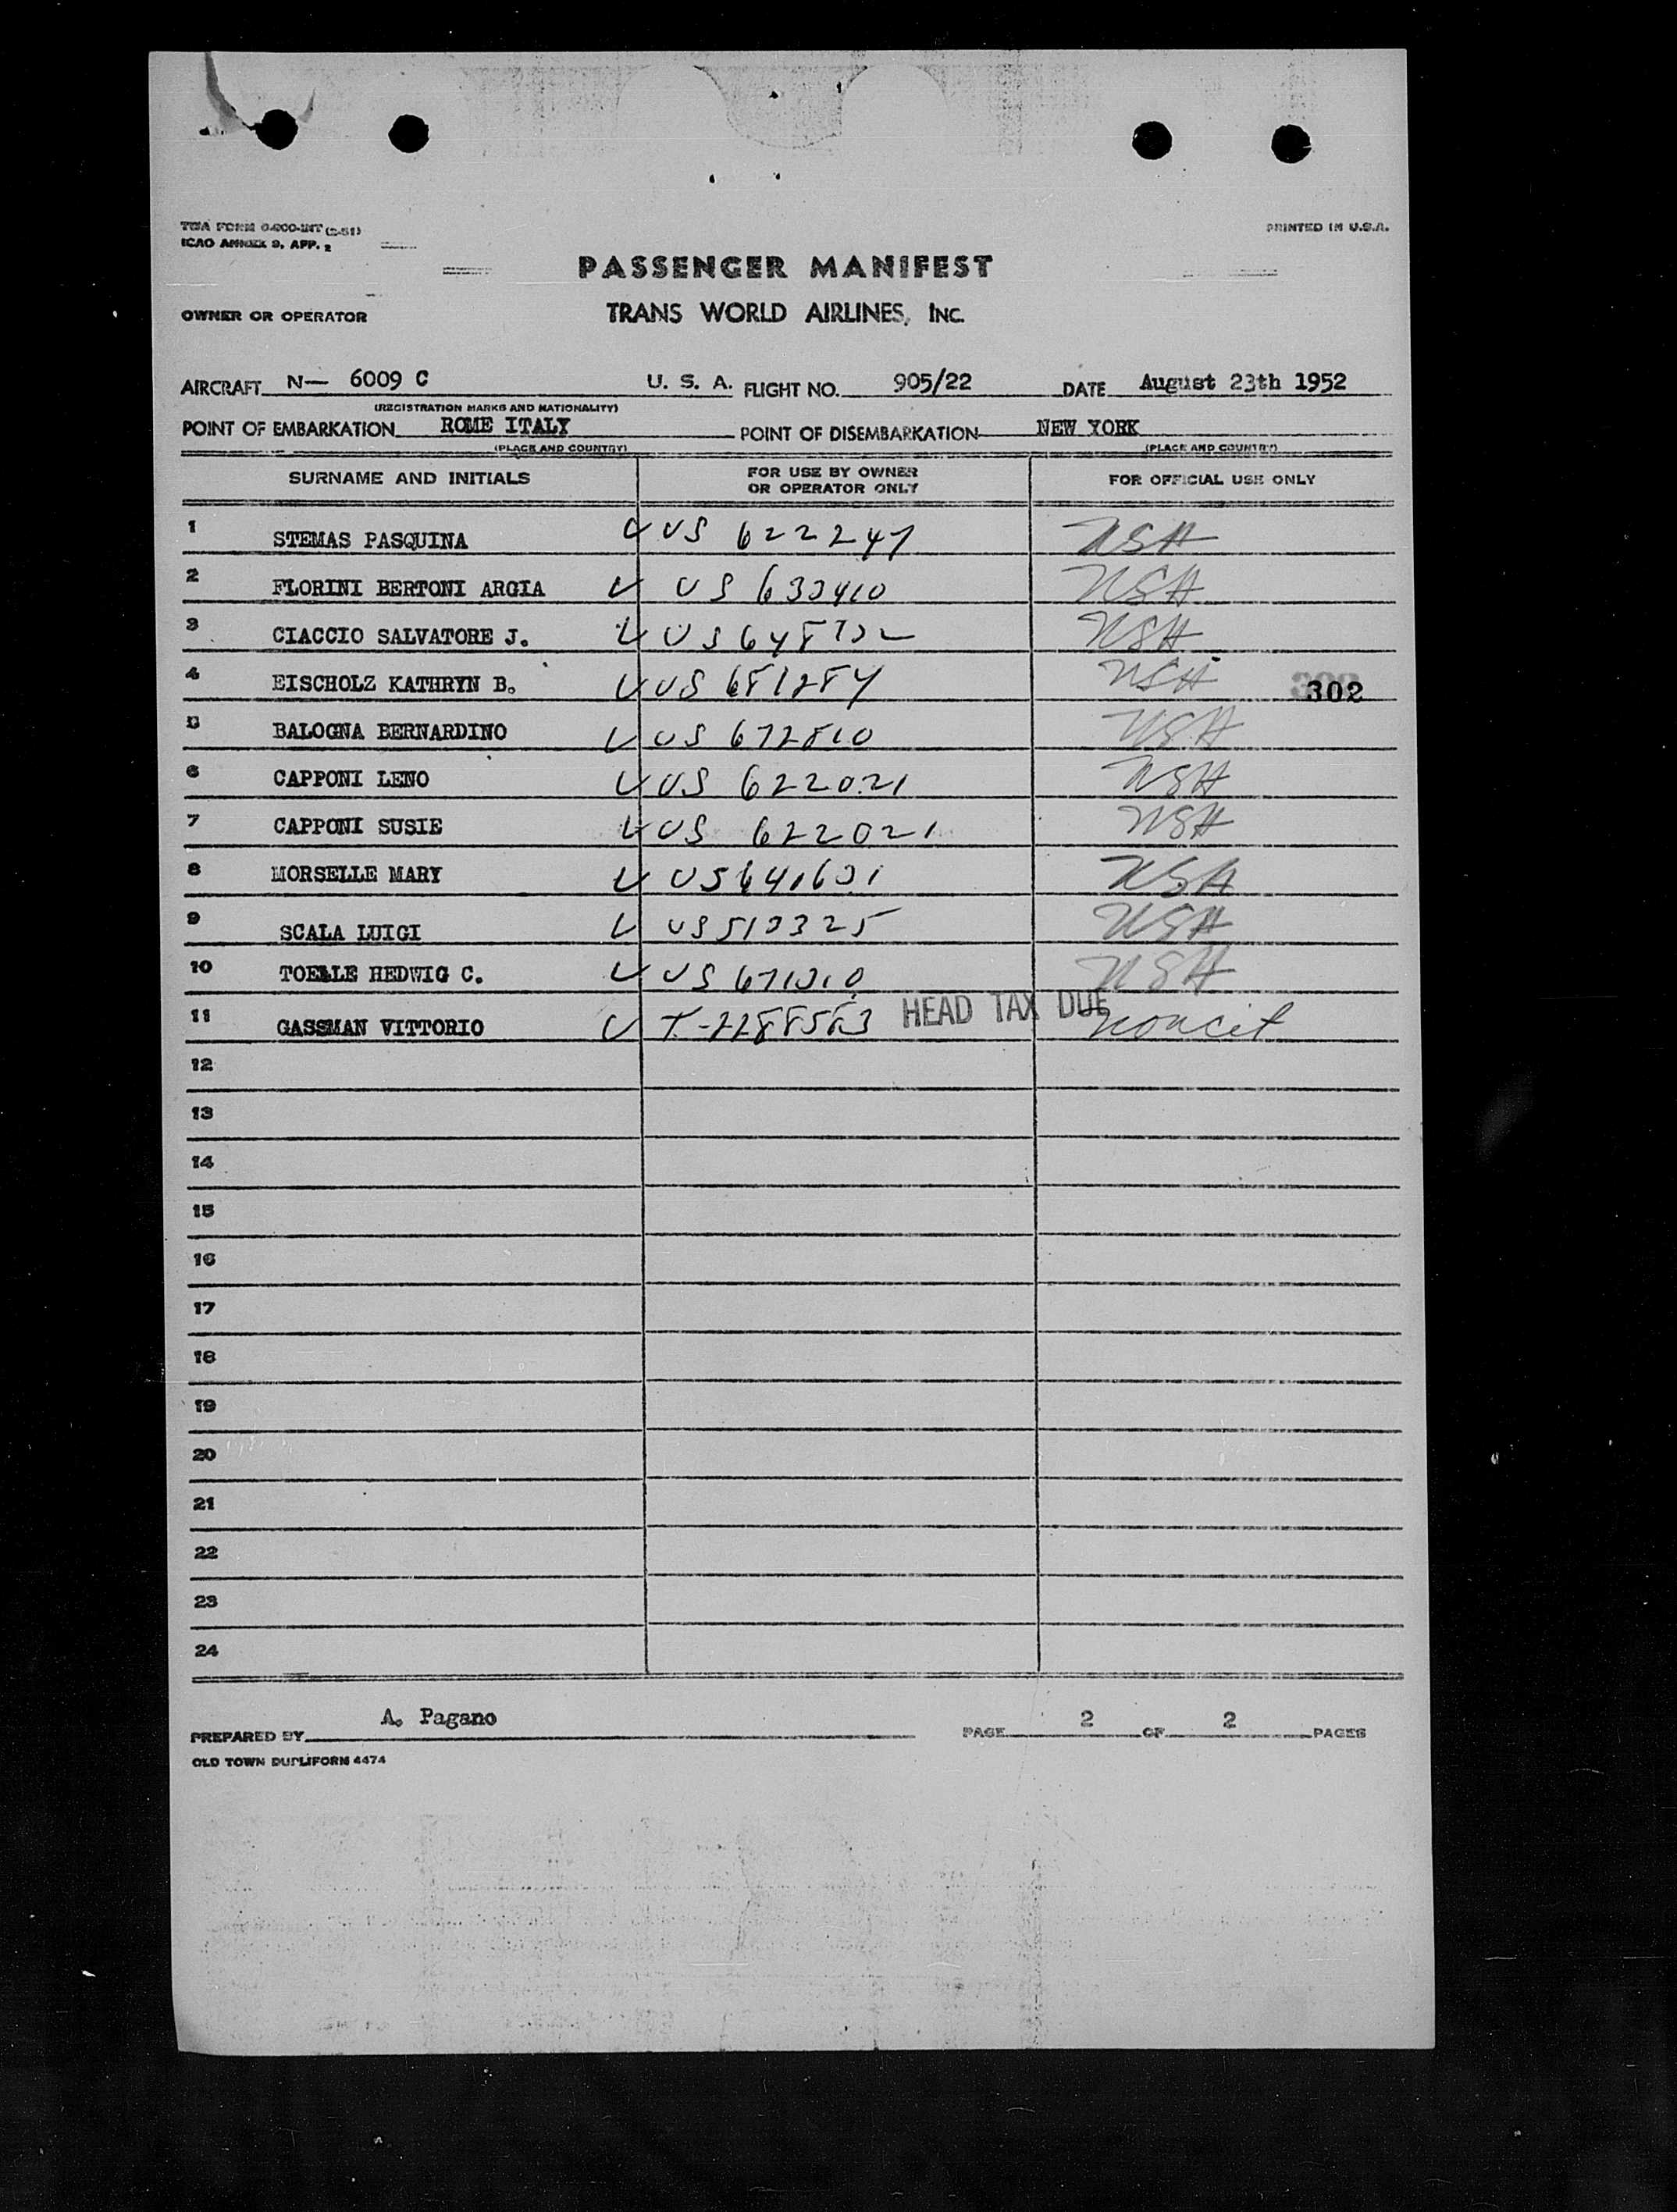 TWA FORM 0-200-INT (2-51)
ICAO ANNEX 9, APP. 2
PRINTED IN U.S.A.
PASSENGER MANIFEST
OWNER OR OPERATOR TRANS WORLD AIRLINES, INC.
AIRCRAFT N— 6009 C U. S. A. FLIGHT NO. 905/22 DATE August 23th 1952
(REGISTRATION MARKS AND NATIONALITY)
POINT OF EMBARKATION ROME ITALY POINT OF DISEMBARKATION NEW YORK
(PLACE AND COUNTRY) (PLACE AND COUNTRY)
SURNAME AND INITIALS FOR USE BY OWNER OR OPERATOR ONLY FOR OFFICIAL USE ONLY
1 STEMAS PASQUINA US 622247 USA
2 FLORINI BERTONI ARGIA US 633410 USA
3 CIACCIO SALVATORE J. US 648732 USA
4 EISCHOLZ KATHRYN B. US 681284 USA 302
5 BALOGNA BERNARDINO US 672810 USA
6 CAPPONI LENO US 622021 USA
7 CAPPONI SUSIE US 622021 USA
8 MORSELLE MARY US 641631 USA
9 SCALA LUIGI US 513325 USA
10 TOELLE HEDWIG C. US 671310 USA
11 GASSMAN VITTORIO HEAD TAX DUE noncit
12
13
14
15
16
17
18
19
20
21
22
23
24
PREPARED BY A. Pagano PAGE 2 OF 2 PAGES
OLD TOWN DUPLIFORM 4474